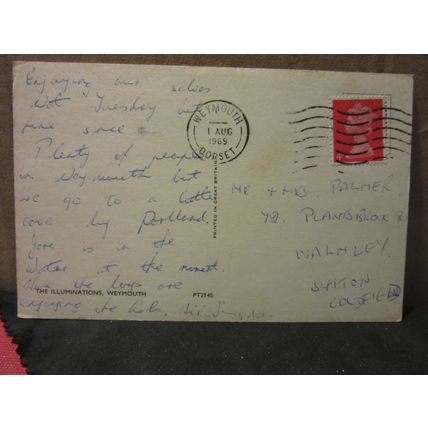 Enjoying our selves
Wet Tuesday but
fine since
Plenty of people
in Weymouth but
we go to a little
cove by Portland.
is in the
Water at the moment.
the boys are
enjoying the
THE ILLUMINATIONS, WEYMOUTH
PT2145
PRINTED IN GREAT BRITAIN
WEYMOUTH
1 AUG
1969
DORSET
MR + MRS. PALMER
72
WALMLEY,
SUTTON
COLDFIELD